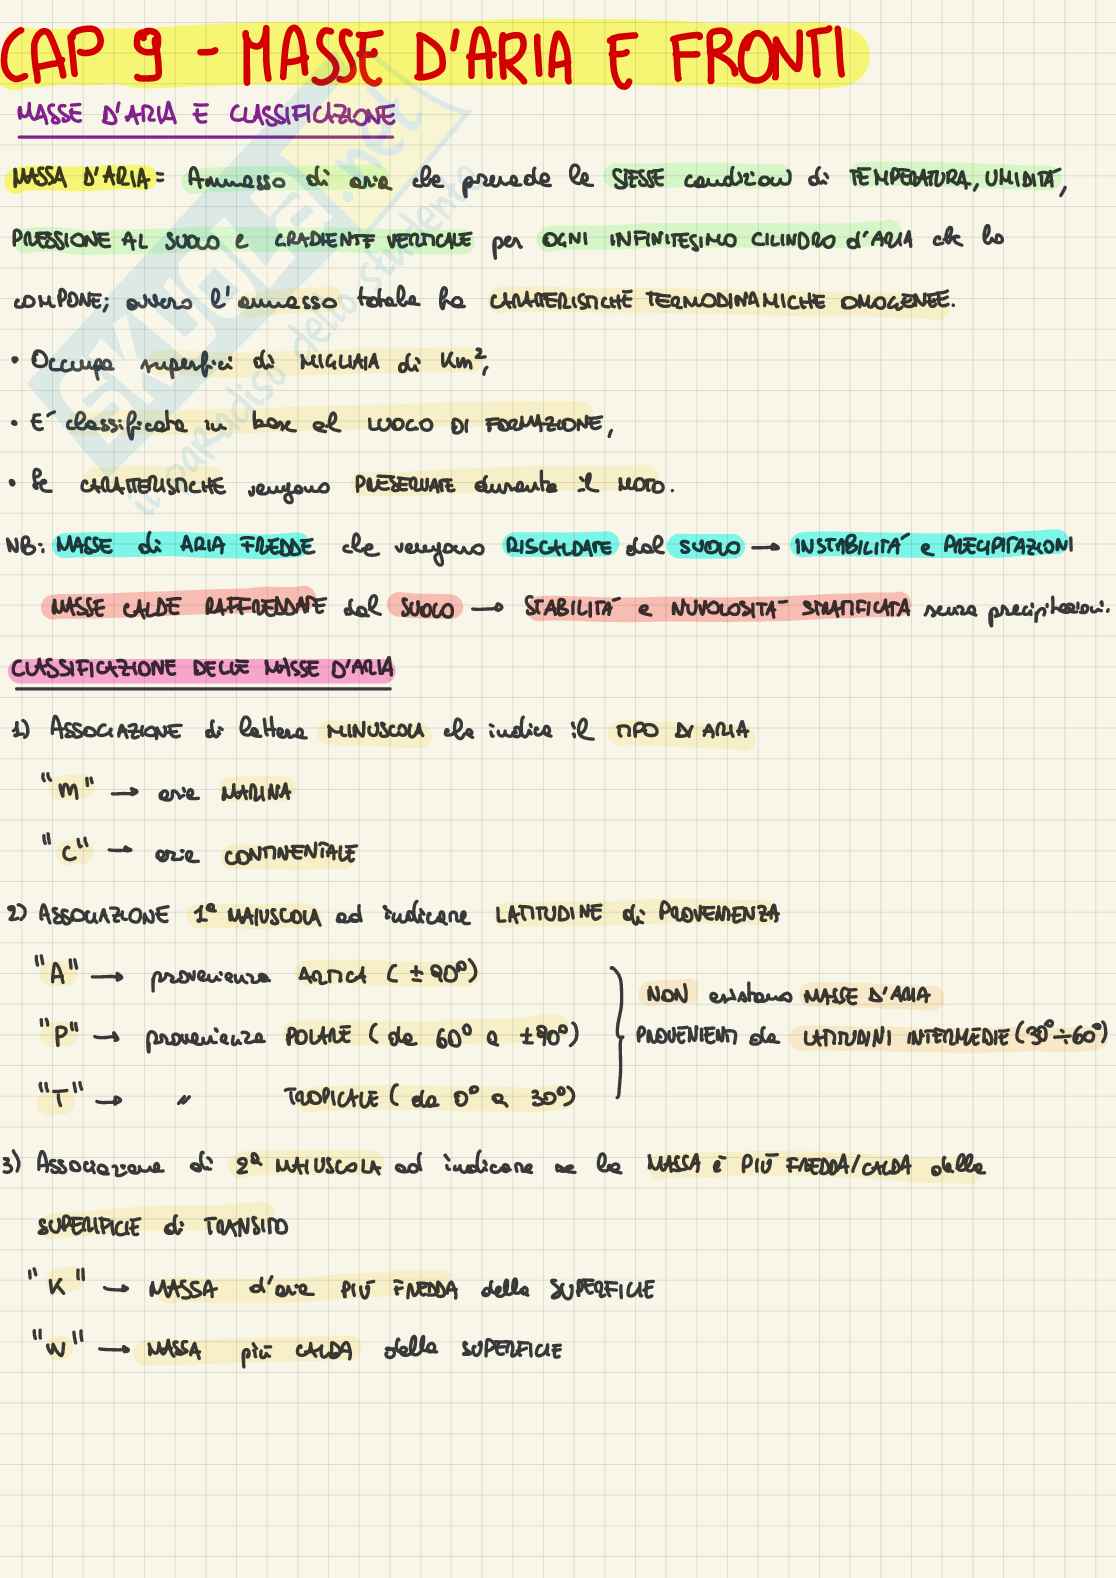 CAP 9 - MASSE D'ARIA E FRONTI
MASSE D'ARIA E CLASSIFICAZIONE
MASSA D'ARIA = Ammasso di aria che prevede le STESSE condizioni di TEMPERATURA, UMIDITÀ,
PRESSIONE AL SUOLO e GRADIENTE VERTICALE per OGNI INFINITESIMO CILINDRO d'ARIA che lo
COMPONE; ovvero l'ammasso totale ha CARATTERISTICHE TERMODINAMICHE OMOGENEE.
• Occupa superfici di MIGLIAIA di Km²;
• E' classificata in base al LUOGO DI FORMAZIONE,
• Le CARATTERISTICHE vengono PRESERVATE durante il MOTO.
NB: MASSE di ARIA FREDDE che vengono RISCALDATE dal SUOLO → INSTABILITA' e PRECIPITAZIONI
MASSE CALDE RAFFREDDATE dal SUOLO → STABILITA' e NUVOLOSITA' STRATIFICATA senza precipitazioni.
CLASSIFICAZIONE DELLE MASSE D'ARIA
1) ASSOCIAZIONE di lettera MINUSCOLA che indica il TIPO DI ARIA
"m" → aria MARINA
"C" → aria CONTINENTALE
2) ASSOCIAZIONE 1ª MAIUSCOLA ad indicare LATITUDINE di PROVENIENZA
"A" → provenienza ARTICA (±90°)
"P" → provenienza POLARE (da 60° a ±90°)
"T" → " TROPICALE (da 0° a 30°)
NON esistono MASSE D'ARIA
PROVENIENTI da LATITUDINI INTERMEDIE (30°÷60°)
3) Associazione di 2ª MAIUSCOLA ad indicare se la MASSA è PIÙ FREDDA/CALDA della
SUPERFICIE di TRANSITO
"K" → MASSA d'aria PIÙ FREDDA della SUPERFICIE
"W" → MASSA più CALDA della SUPERFICIE
SKUOLA.net
il paradiso dello studente